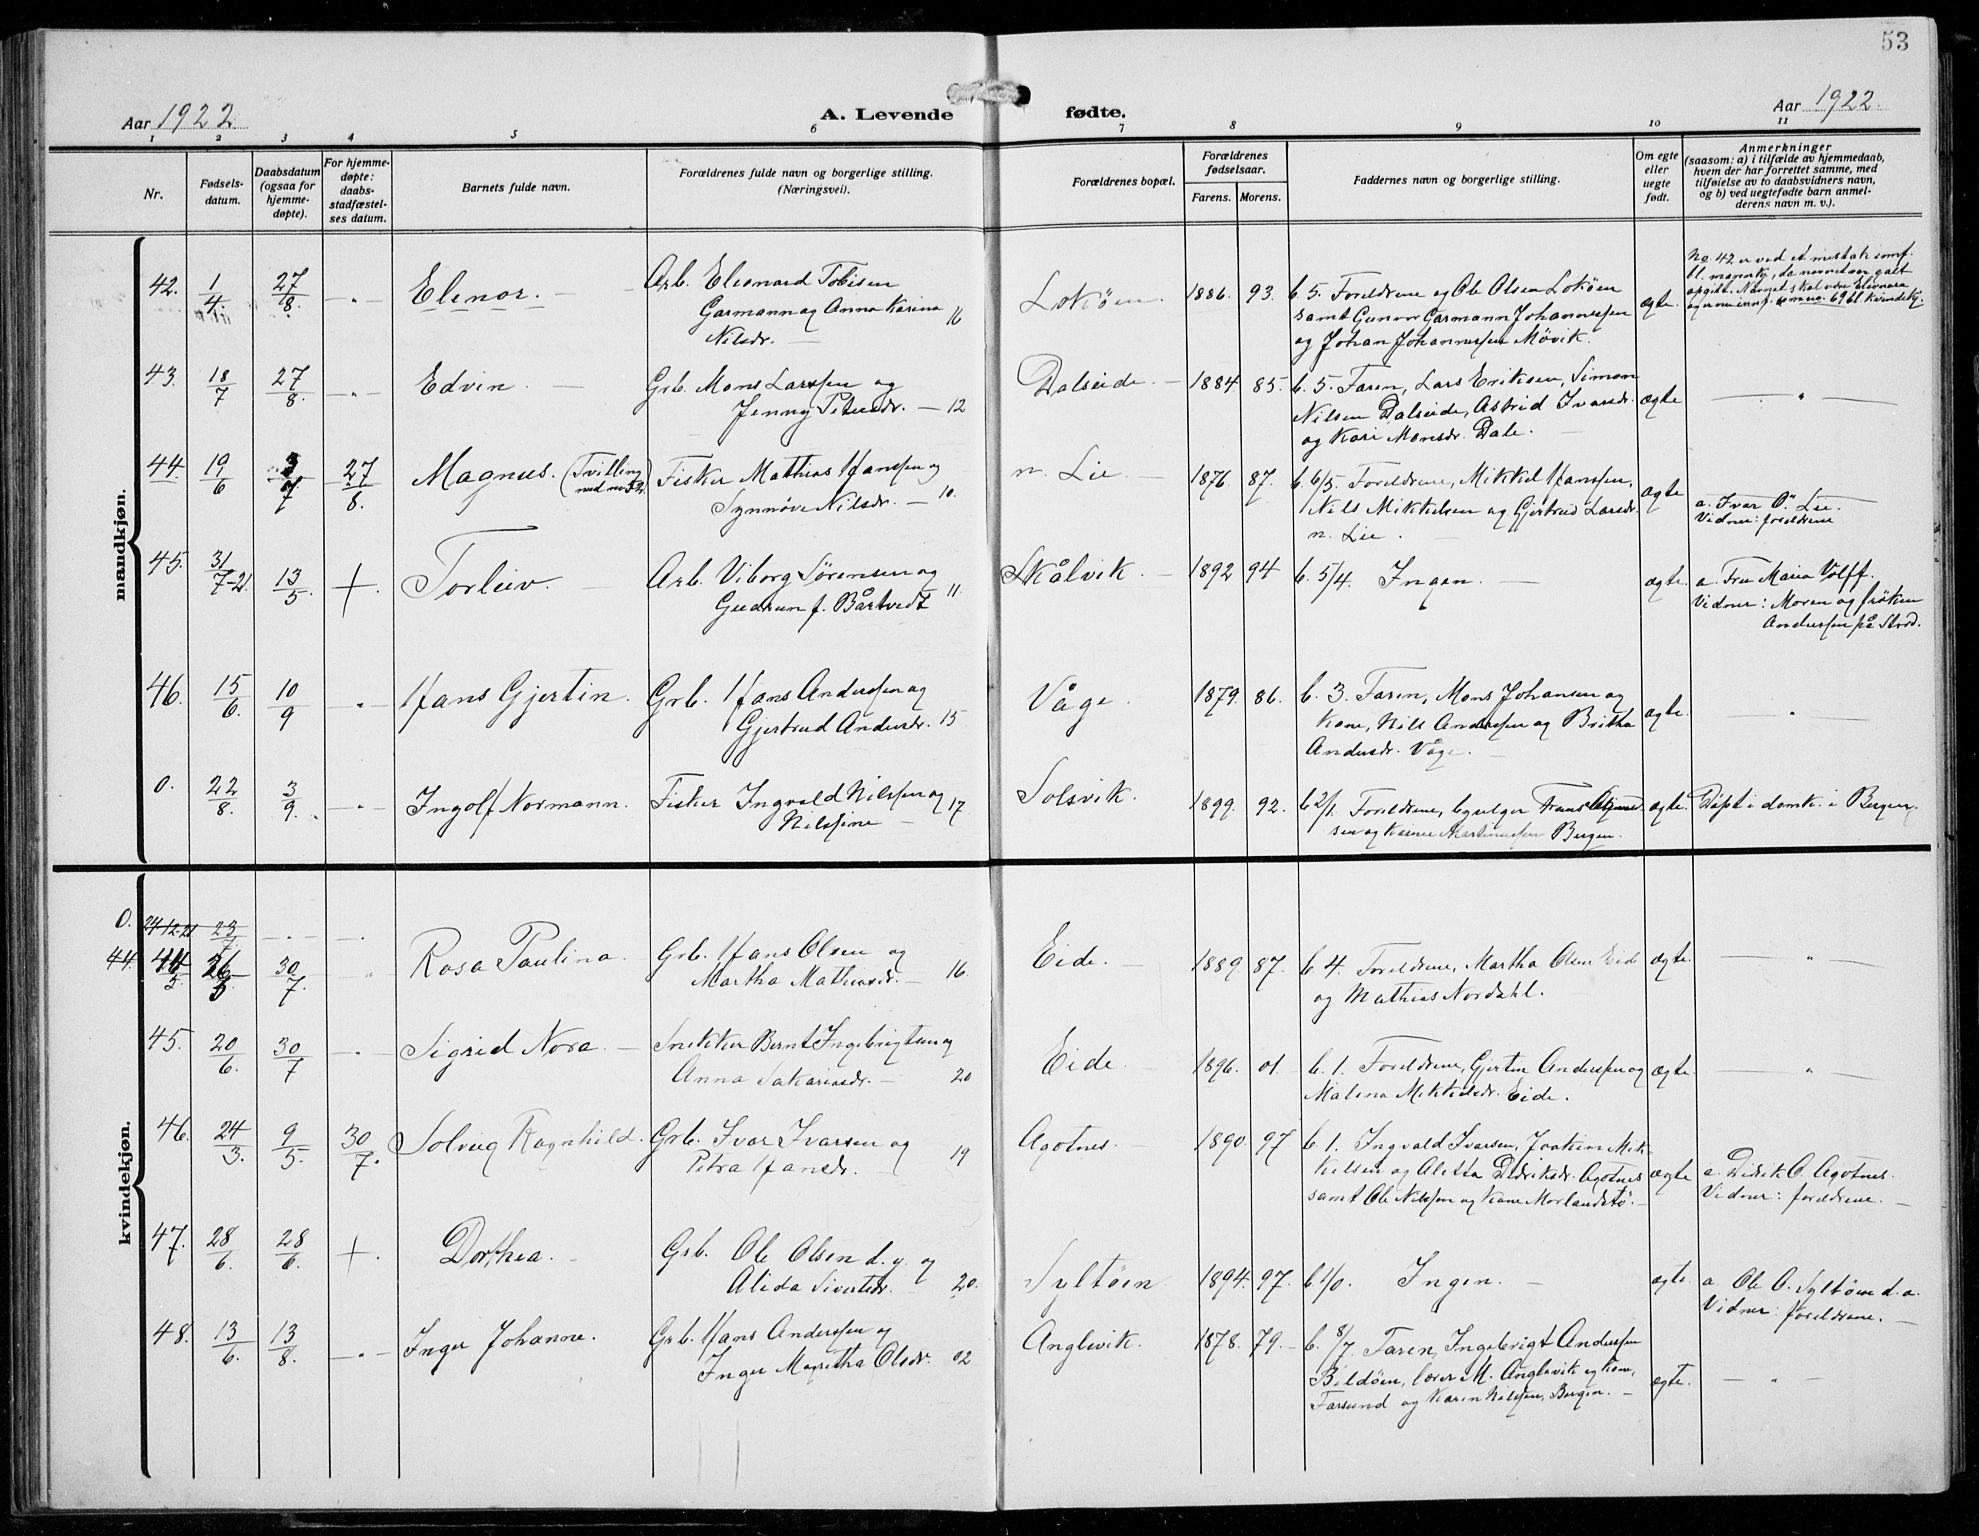 53
Aar 1922.
A. Levende fødte.
Aar 1922.
1 2 3 4 5 6 7 8 9 10 11
Nr.
Fødsels-
datum.
Daabsdatum
(ogsaa for
hjemme-
døpte).
For hjemme-
døpte:
daabs-
stadfæstel-
ses datum.
Barnets fulde navn.
Forældrenes fulde navn og borgerlige stilling.
(Næringsvei).
Forældrenes bopæl.
Forældrenes
fødselsaar.
Farens. Morens.
Faddernes navn og borgerlige stilling.
Om egte
eller
uegte
født.
Anmerkninger
(saasom: a) i tilfælde av hjemmedaab,
hvem der har forrettet samme, med
tilføielse av to daabsvidners navn,
og b) ved uegtefødte barn anmel-
derens navn m. v.).
mandkjøn.
42. 1/4 27/8. -"- Elenor. Arb. Elesmard Tobisen
Garmann og Anna Karina 16
Nilsdr. —
Lokøen. 1886. 93. b. 5. Foreldrene og Ole Olsen Lokøen
samt Gunvor Garmann Johannessen
og Johan Johannessen Møvik. ægte.
No 42 er ved et mistak
bl. da galt
opgit. Navnet skal være Elenora
no. 69 bl. kvindekj.
43. 18/7 27/8. -"- Edvin. — Grb. Mons Larssen og
Jenny Petersdr. — 12
Dalseide. — 1884. 85. b. 5. Faren, Lars Eriksen, Simon
Nilsen Dalseide, Astrid Ivarsdr.
og Kari Monsdr. Dale. — ægte — " —
44. 19/6 3/7 27/8. Magnus. (Tvilling
med no 52.) Fisker Mathias Hanssen og
Synnøve Nilsdr. — 10.
n. Lie. 1876. 87. b. 6/5. Foreldrene, Mikkel Hanssen,
Nils Mikkelsen og Gjertrud Larsdr.
n. Lie. ægte a. Ivar O. Lie.
Vidner: foreldrene
45. 31/7-21 13/5. + Torleiv. — Arb. Viborg Sørensen og
Gudrun f. Bårtvedt 11.
Skålvik. — 1892 94 b. 5/4. Ingen. — ægte. a. Fru Maria Volff.
Vidner: Moren og frøken
Anderssen på Stord.
46. 15/6. 10/9 -"- Hans Gjertin. Grb. Hans Anderssen og
Gjertrud Andersdr. 15
Våge. 1879. 86. b. 3. Faren, Mons Johansen og
Kone, Nils Anderssen og Britha
Andersdr. Våge. — ægte. — " —
0. 22/8. 3/9. -"- Ingolf Normann. Fisker Ingvald Nilssen og 17
Nilsine —
Solsvik. 1899. 92. b 2/1. Foreldrene, Frans
sen og Kone Bergen. ægte. Døpt i domk. i Bergen.
kvindekjøn.
0. 24-12-21 23/7 -"- -"-
44. 30/7. " Rosa Paulina — Grb. Hans Olsen og
Martha Mathiasdr. — 16.
Eide. — 1889. 87. b. 4. Foreldrene, Martha Olsen Eide
og Mathias Nordahl. ægte. — " —
45. 20/6. 30/7 -"- Sigrid Nora. — Snekker Bernt Ingebrigtsen og
Anna Sakariasdr. — 20
Eide. 1896. 01. b. 1. Foreldrene, Gjertin Anderssen og
Malena Mikkelsdr. Eide. ægte. — " —
46. 24/3. 9/5. 30/7. Solveig Ragnhild. Grb. Ivar Ivarsen og
Petra Hansdr. — 19
Agotnes. — 1890. 97 b. 1. Ingvald Ivarsen, Joakim Mik-
kelsen og Aletta Didriksdr. Agotnes
samt Ole Nilssen og Kone Morlandstø. — ægte a. Didrik O. Agotnes.
Vidner: foreldrene. —
47. 28/6. 28/6. + Dorthea. — Grb. Ole Olsen d. y. og
Alida Sivertsdr. — 20.
Syltøen. 1894. 97. b 1/0. Ingen. — ægte. a. Ole O. Syltøen d. a.
Vidner: foreldrene. —
48. 13/6. 13/8. -"- Inger Johanne. Grb. Hans Anderssen og
Inger Magretha Olsdr. 02
Anglevik. 1878. 79. b. 8/7. Faren, Ingebrigt Anderssen
Bildøen, lærer M. Anglevik og Kone,
Farsund og Karen Nilssen, Bergen. — ægte. — " —